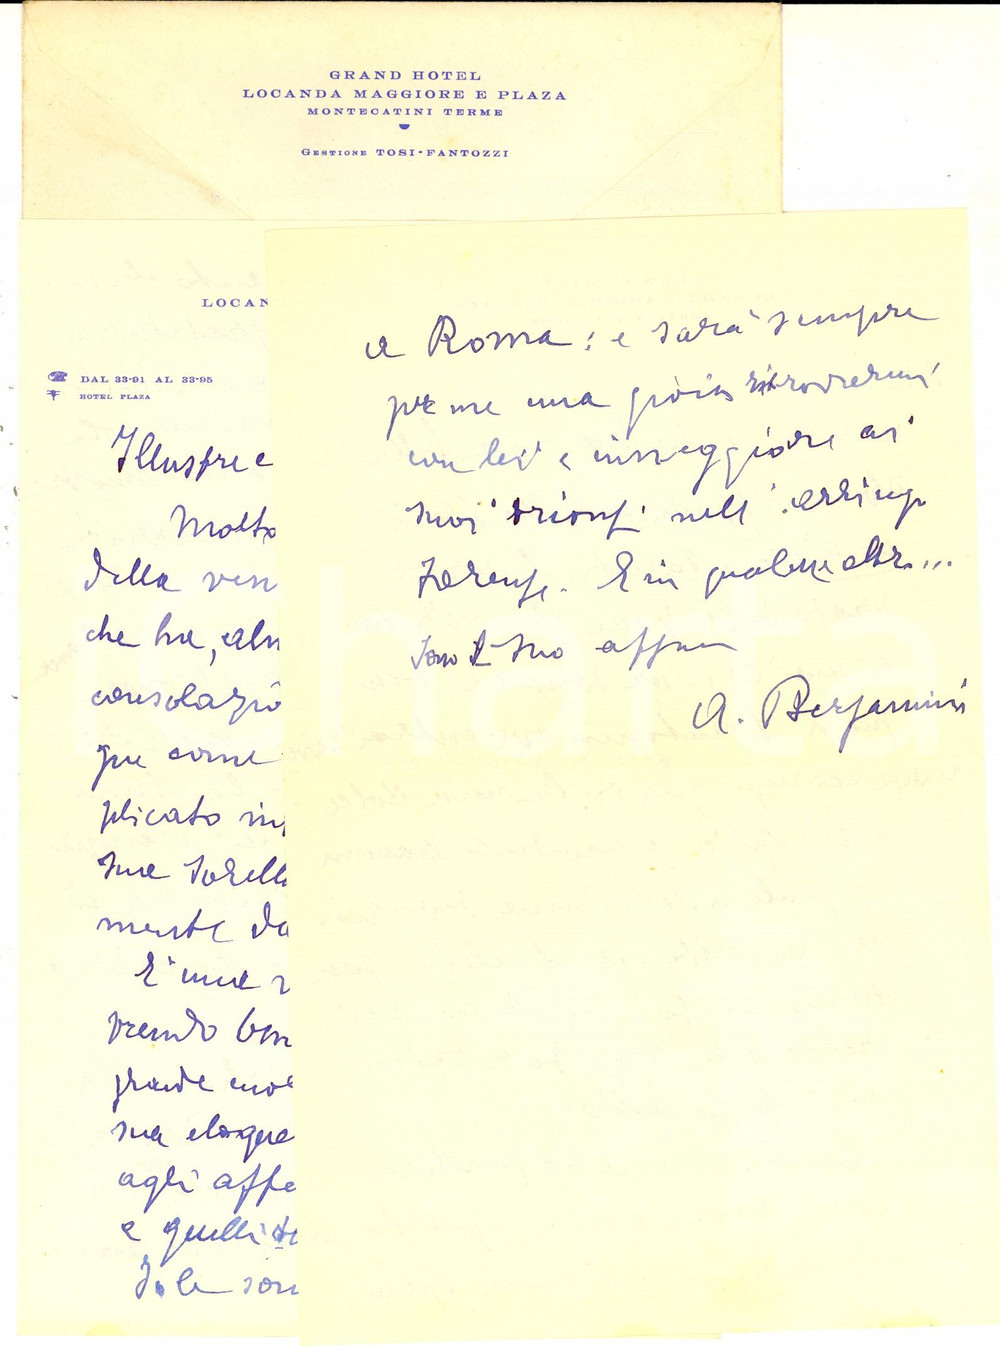 GRAND HOTEL
LOCANDA MAGGIORE E PLAZA
MONTECATINI TERME
GESTIONE TOSI-FANTOZZI
LOCAN
DAL 33-91 AL 33-95
HOTEL PLAZA
Illustre e
Molto
della
che ha,
consolazio
que come
plicato
sue sorell
mente da
E' una
vremdo
grande
sua eloque
agli affe
e quelli
Io le son
a Roma: e sarà sempre
per me una gioia ritrovarmi
con lei e inneggiare ai
suoi trionfi nell'arringo
forense. E in qualche altro...
Sono il Suo affmo
A. Bergamini